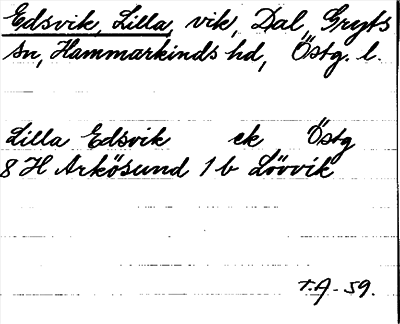 Edsvik, Lilla, vik, Dal, Gryts
sn, Hammarkinds hd, Östg. l.
Lilla Edsvik ek Östg
8 H Arkösund 1 b Lövvik
T.A. - 59.